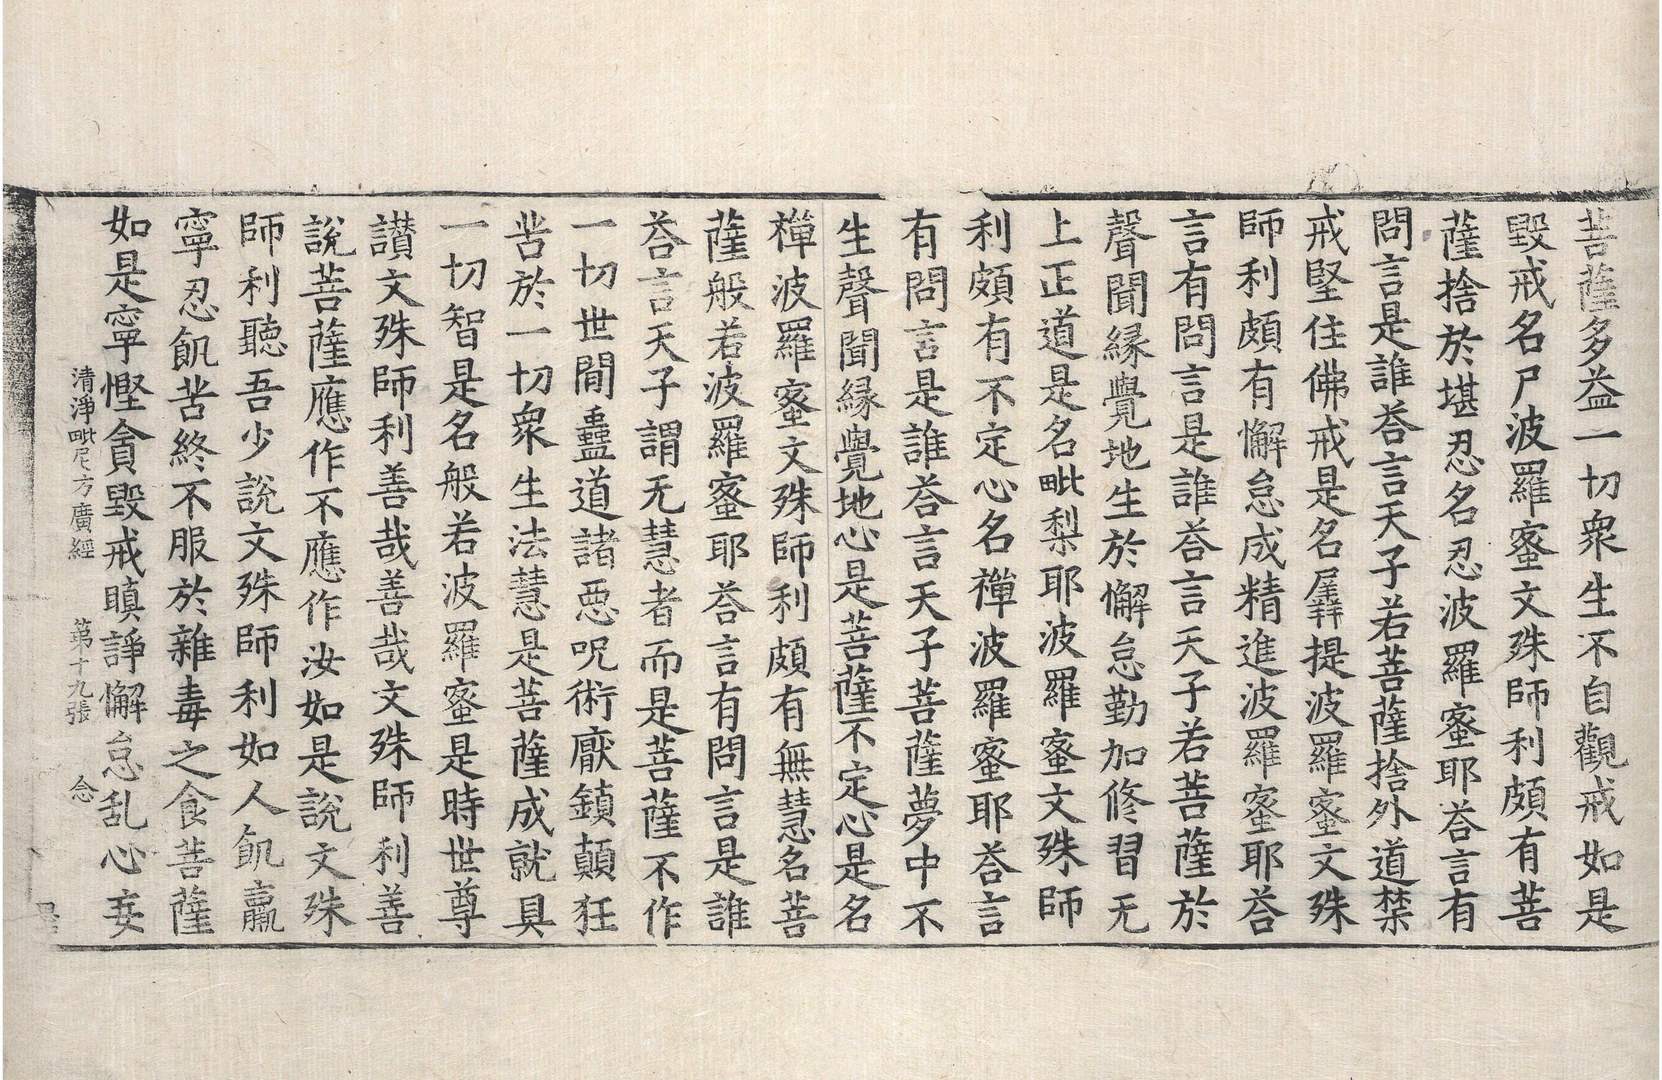 菩薩多益一切衆生不自觀戒如是
毀戒名尸波羅蜜文殊師利頗有菩
薩捨於堪忍名忍波羅蜜耶荅言有
問言是誰荅言天子若菩薩捨外道禁
戒堅住佛戒是名羼提波羅蜜文殊
師利頗有懈怠成精進波羅蜜耶荅
言有問言是誰荅言天子若菩薩於
聲聞縁覺地生於懈怠勤加修習无
上正道是名毗梨耶波羅蜜文殊師
利頗有不定心名禪波羅蜜耶荅言
有問言是誰荅言天子菩薩夢中不
生聲聞縁覺地心是菩薩不定心是名
禪波羅蜜文殊師利頗有無慧名菩
薩般若波羅蜜耶荅言有問言是誰
荅言天子謂无慧者而是菩薩不作
一切世間蠱道諸惡呪術厭鎮顛狂
苦於一切衆生法慧是菩薩成就具
一切智是名般若波羅蜜是時世尊
讃文殊師利善哉善哉文殊師利善
說菩薩應作不應作汝如是說文殊
師利聽吾少說文殊師利如人飢羸
寧忍飢苦終不服於雜毒之食菩薩
如是寧慳貪毀戒瞋諍懈怠乱心妄
清淨毗尼方廣經 第十九張 念